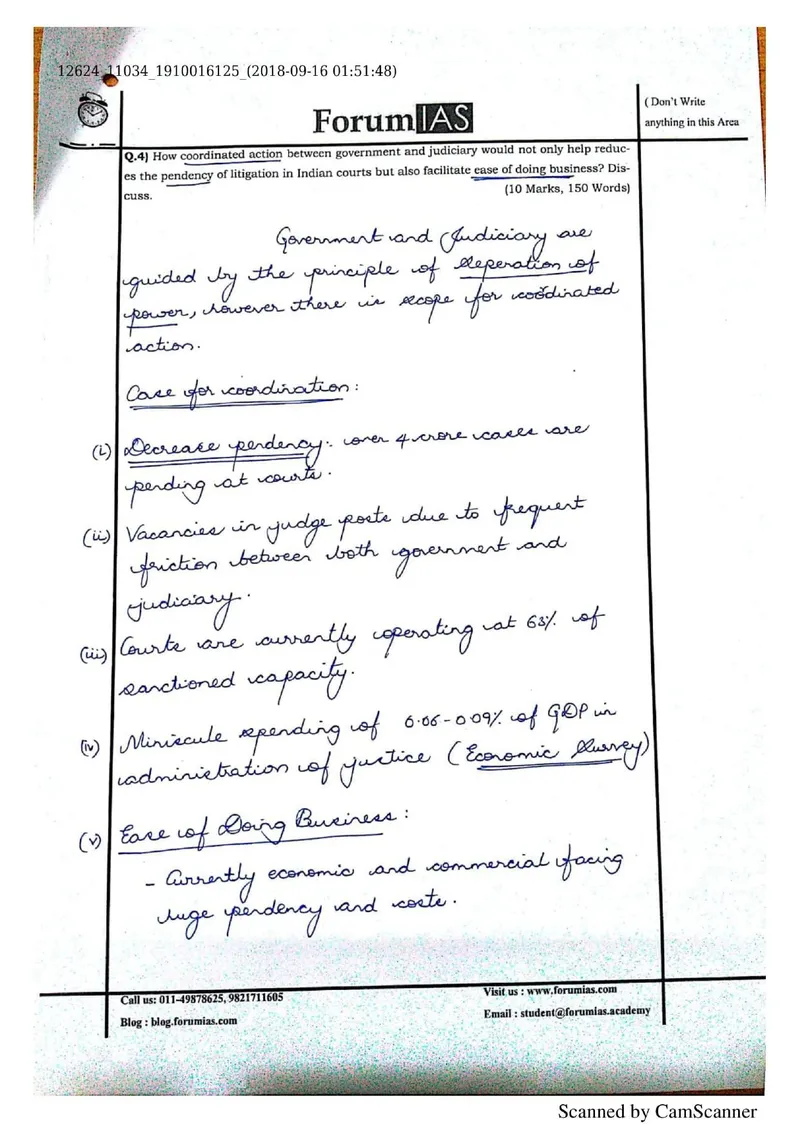 12624_11034_1910016125_(2018-09-16 01:51:48)
( Don't Write
anything in this Area
ForumIAS
Q.4) How coordinated action between government and judiciary would not only help reduc-
es the pendency of litigation in Indian courts but also facilitate ease of doing business? Dis-
cuss. (10 Marks, 150 Words)
Government and Judiciary are
guided by the principle of Seperation of
power, however there is scope for coordinated
action.
Case for coordination :
(i) Decrease pendency :. over 4 crore cases are
pending at courts.
(ii) Vacancies in judge posts due to frequent
friction between both government and
judiciary.
(iii) Courts are currently operating at 63% of
sanctioned capacity.
(iv) Miniscule spending of 0.06-0.09% of GDP in
administration of justice (Economic Survey)
(v) Ease of Doing Business :
- Currently economic and commercial facing
huge pendency and costs.
Call us: 011-49878625, 9821711605
Blog : blog.forumias.com
Visit us : www.forumias.com
Email : student@forumias.academy
Scanned by CamScanner